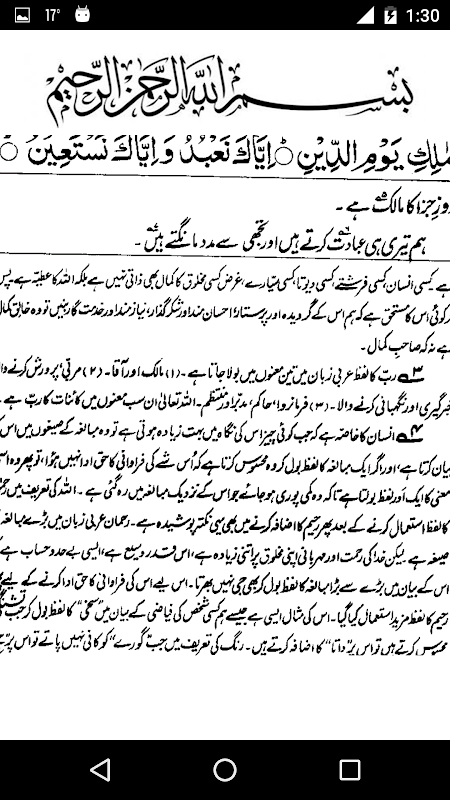 17° 1:30
بسم الله الرحمن الرحيم
مٰلِكِ يَوْمِ الدِّيْنِ اِيَّاكَ نَعْبُدُ وَاِيَّاكَ نَسْتَعِيْنُ
روزِ جزا کا مالک ہے۔
ہم تیری ہی عبادت کرتے ہیں اور تجھی سے مدد مانگتے ہیں۔
ہے کسی انسان، کسی فرشتے، کسی دیوتا، کسی سیّارے، غرض کسی مخلوق کا کمال بھی ذاتی نہیں ہے بلکہ اللہ کا عطیہ ہے پس
کوئی اس کا مستحق ہے کہ ہم اس کے گرویدہ اور پرستار، احسان مند اور شکر گذار، نیاز مند اور خدمت گار بنیں تو وہ خالقِ کمال
ہے نہ کہ صاحبِ کمال۔
۳ ربّ کا لفظ عربی زبان میں تین معنوں میں بولا جاتا ہے۔ (۱) مالک اور آقا۔ (۲) مربّی، پرورش کرنے والا
خبرگیری اور نگہبانی کرنے والا۔ (۳) فرمانروا، حاکم، مدبّر اور منتظم۔ اللہ تعالیٰ ان سب معنوں میں کائنات کا رب ہے۔
۴ انسان کا خاصّہ ہے کہ جب کوئی چیز اس کی نگاہ میں بہت زیادہ ہوتی ہے تو وہ مبالغہ کے صیغوں میں اس
بیان کرتا ہے، اور اگر ایک مبالغہ کا لفظ بول کر وہ محسوس کرتا ہے کہ اُس شے کی فراوانی کا حق ادا نہیں ہوا، تو پھر وہ
معنی کا ایک اور لفظ بولتا ہے تاکہ وہ کمی پوری ہو جائے جو اس کے نزدیک مبالغہ میں رہ گئی ہے۔ اللہ کی تعریف میں
کا لفظ استعمال کرنے کے بعد پھر رحیم کا اضافہ کرنے میں بھی یہی نکتہ پوشیدہ ہے۔ رحمان عربی زبان میں بڑے مبالغہ
صیغہ ہے لیکن خدا کی رحمت اور مہربانی اپنی مخلوق پر اتنی زیادہ ہے، اس قدر وسیع ہے، ایسی بے حد و حساب ہے
اس کے بیان میں بڑے سے بڑا مبالغہ کا لفظ بول کر بھی جی نہیں بھرتا۔ اس لیے اس کی فراوانی کا حق ادا کرنے کے لیے
رحیم کا لفظ مزید استعمال کیا گیا۔ اس کی مثال ایسی ہے جیسے ہم کسی شخص کی فیاضی کے بیان میں "سخی" کا لفظ بول کر جب تشنگی
محسوس کرتے ہیں تو اس پر "داتا" کا اضافہ کرتے ہیں۔ رنگ کی تعریف میں جب "گورے" کو کافی نہیں پاتے تو اس پر